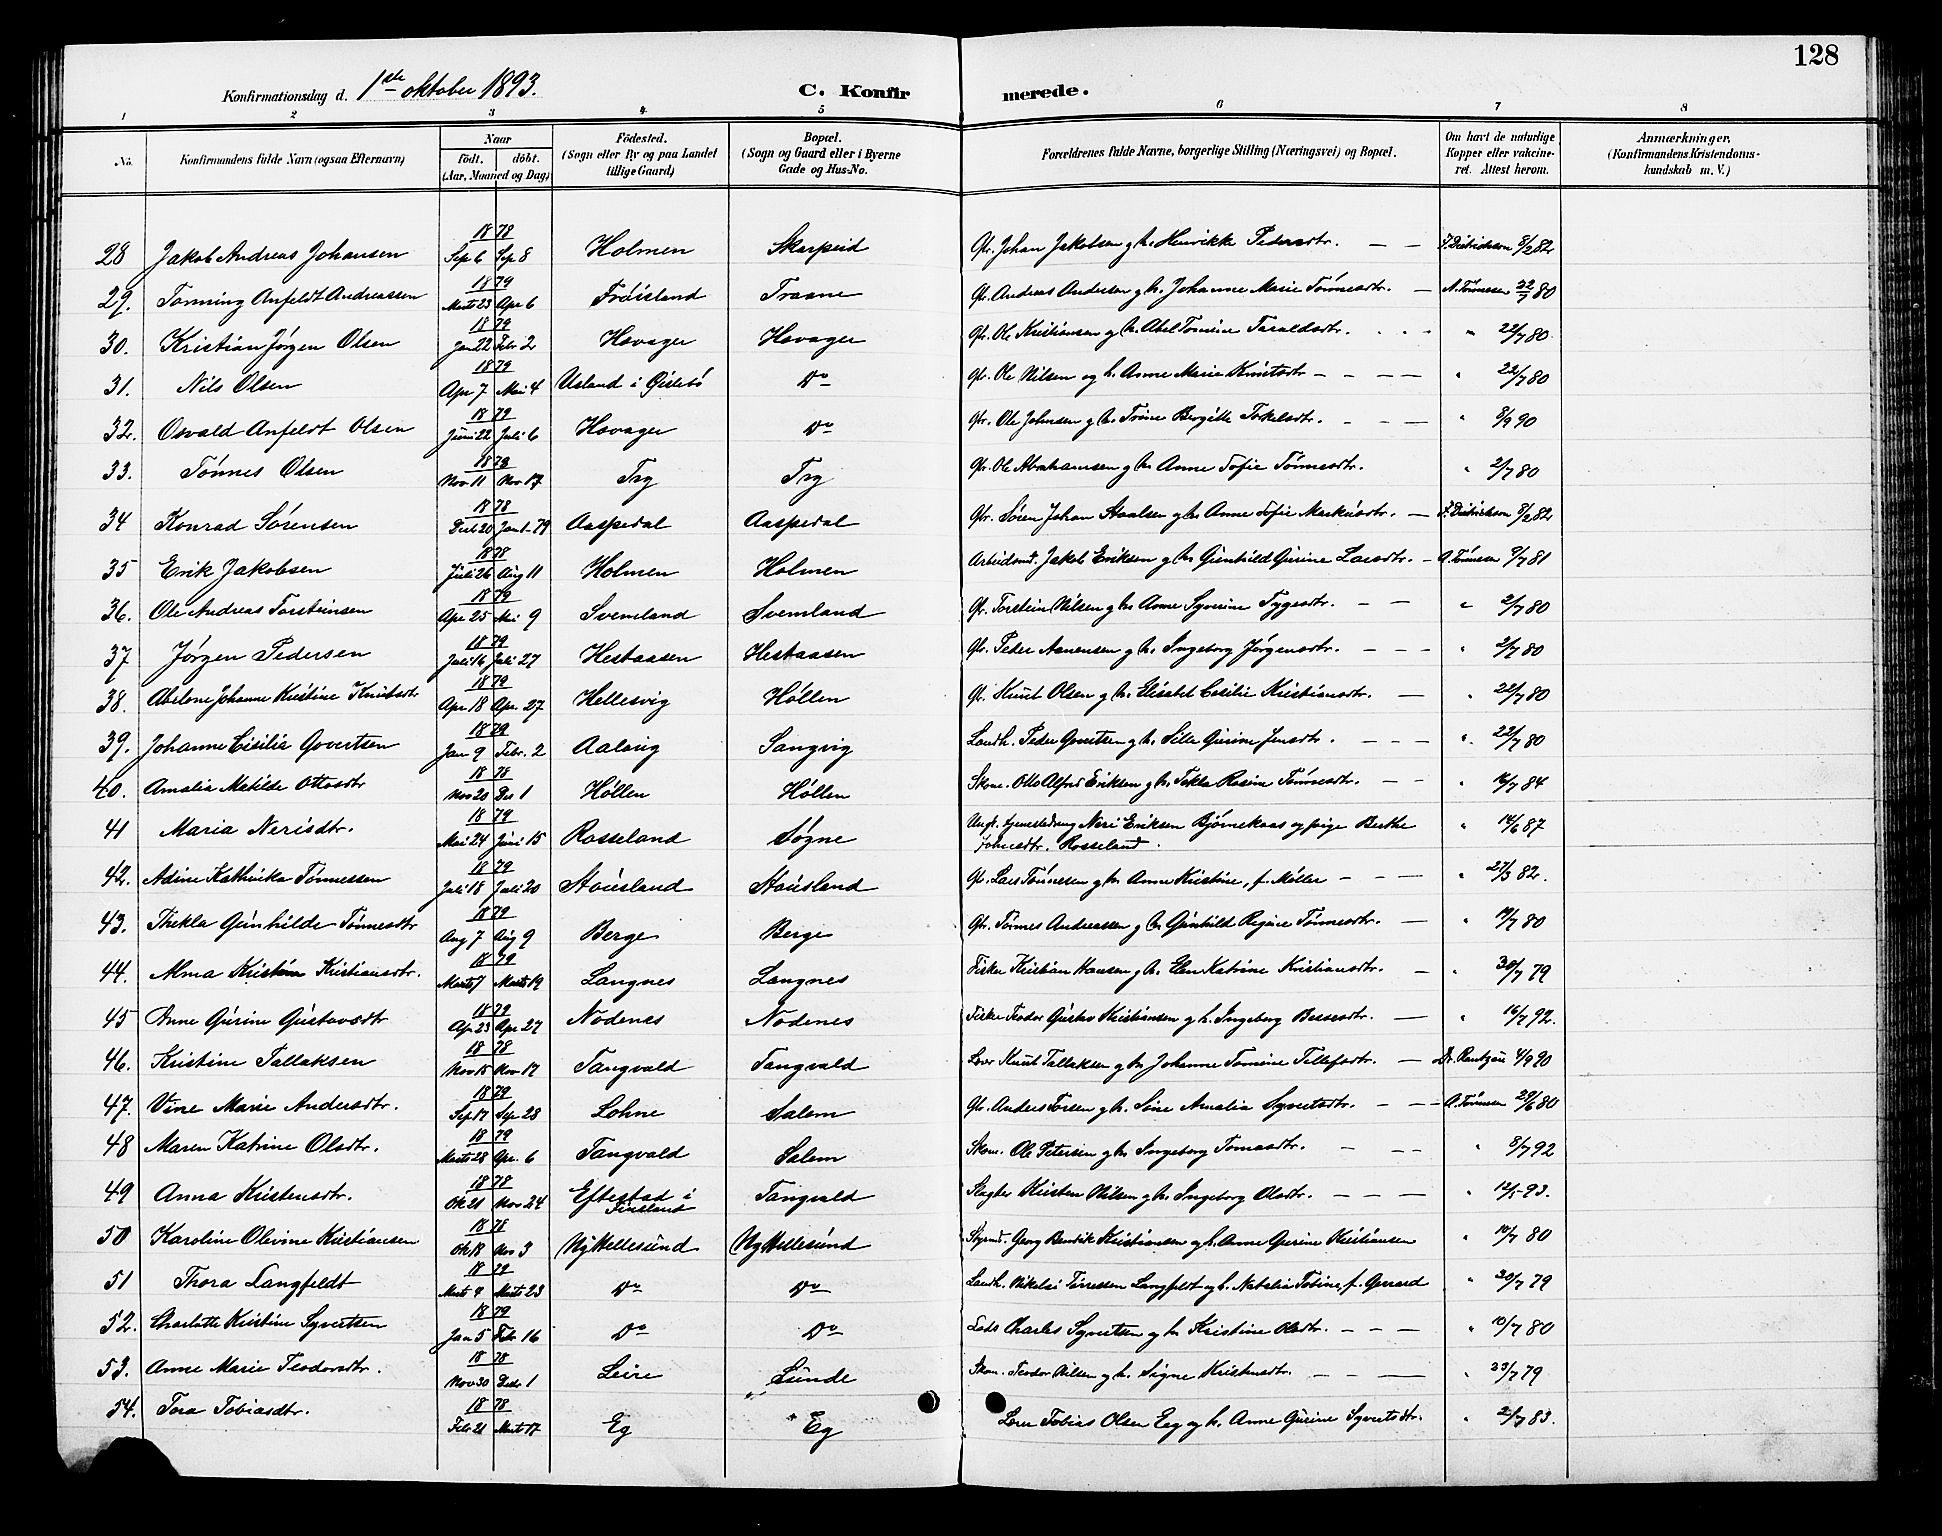 128
Konfirmationsdag d. 1ste oktober 1893.
C. Konfir merede.
1 2 3 4 5 6 7 8
No. Konfirmandens fulde Navn (ogsaa Efternavn) Naar født. døbt. (Aar, Maaned og Dag) Fødested. (Sogn eller By og paa Landet tillige Gaard) Bopæl. (Sogn og Gaard eller i Byerne Gade og Hus-No. Forældrenes fulde Navne, borgerlige Stilling (Næringsvei) og Bopæl. Om havt de naturlige Kopper eller vakcineret. Attest herom. Anmærkninger, (Konfirmandens Kristendomskundskab m. V.)
28 Jakob Andreas Johansen 1878 Sep 6 Sep 8 Holmen Skarpeid Gbr. Johan Jakobsen g h. Henrikke Pedersdtr. — — 8/2 82
29. Tønning Anfeldt Andreassen 1879 Marts 23 Apr 6 Frøisland Traane Gbr. Andreas Andersen g h. Johanne Marie Tønnesdtr. — A. Tønnesen 22/7 80
30. Kristian Jørgen Olsen 1879 Jan 22 Febr 2 Havager Havager Gbr. Ole Kristiansen g h. Abel Tomine Taraldsdtr. - - - " 22/7 80.
31. Nils Olsen 1879 Apr 7 Mai 4 Usland i Øislebø Do Gbr. Ole Nilsen og h. Anne Marie Knutsdtr — - - — " 22/7 80
32. Osvald Anfeldt Olsen 1879 Juni 22 Juli 6 Havager Do Gbr. Ole Johnsen g h. Trine Bergitte Torkelsdtr. - — — " 8/9 90
33. Tønnes Olsen 1878 Nov 11 Nov 17 Try Try Gbr. Ole Abrahamsen g h Anne Sofie Tønnesdtr. " 2/7 80
34 Konrad Sørensen 1878 20 Jan 1. 79 Aaspedal Aaspedal Gbr. Søren Johan Staalsen g h. Anne Sofie Markusdtr. — 8/2 82
35 Erik Jakobsen 1878 Juli 26 Aug 11 Holmen Holmen Arbeidsmd. Jakob Erikson g h Gunhild Gurine Larsdtr. — A. Tønnesen 9/7 81
36. Ole Andreas Torsteinsen 1879 Apr 25 Mai 9 Svemland Svemland Gbr. Torstein Nilsen g h. Anne Syverine Tygesdtr. — — " 2/7 80
37 Jørgen Pedersen 1879 Juli 16 Juli 27 Hestaasen Hestaasen Gbr. Peder Aanensen g h. Ingeborg Jørgensdtr. — - - " 2/7 80
38. Abelone Johanne Kristine Knutsdtr 1879 Apr 18 Apr. 27 Hellesvig Høllen Gbr. Knut Olsen g h. Elisabet Cecilie Kristiansdtr. — " 22/7 80
39. Johanne Cicilie Govertsen 1879 Jan 9 Febr. 2 Aalvig Langvig Landh. Peder Govertsen g h. Sille Gurine Jensdtr. — - - — " 22/7 80
40. Amalia Matilde Ottosdtr 1878 Nov 20 Des 1 Høllen Høllen Skom. Otto Alfred Eriksen g h. Tekla Rasine Tønnesdtr. — — " 16/7 84
41 Maria Nerisdtr. 1879 Mai 24 Juni 15 Rosseland Søgne Ungk. tjenestedreng Neri Eriksen Bjørnekaas og pige Berthe " 14/6 87
Johnsdtr. Rosseland.
42. Adine Kathinka Tønnessen 1879 Juli 18 Juli 20 Stausland Stausland Gbr. Lars Tønnesen g h. Anne Kristine, f. Møller — - - — " 27/3 82.
43. Thekla Gunhilde Tønnesdtr 1879 Aug 7 Aug 9 Berge Berge Gbr. Tønnes Andreassen g h Gunhild Regine Tønnesdtr. — " 19/7 80
44. Alma Kristine Kristiansdtr. 1879 Marts 7 Marts 19 Langnes Langnes Fisker Kristian Hansen g h. Elen Katrine Kristiansdtr. — " 30/7 79
45 Anne Gurine Gustavsdtr 1879 Ap. 23 Apr 27 Nodenes Nodenes Fisker Teodor Gustav Kristiansen g h. Ingeborg Bessesdtr. — " 16/7 92.
46. Kristine Tallaksen 1878 Nov 15 Nov 17 Tangvald Tangvald Leier Knut Tallaksen g h. Johanne Tomine Tellefsdtr. — Dr. Rantzau 4/9 90
47. Vine Marie Andersdtr. 1879 Sep. 17 Sep. 28 Lohne Salem Gbr. Anders Torsen g h. Sine Amalia Syvertsdtr. — - — A. Tønnesen 29/6 80
48 Maren Katrine Olsdtr. 1879 Marts 28 Apr. 6 Tangvald Salem Skom. Ole Petersen g h Ingeborg Tomasdtr. — - - — " 8/7 92
49 Anna Kristensdtr. 1878 Ok 21 Nov 24 Eftestad i Finsland Tangvald Slagter Kristen Nilsen g h. Ingeborg Olsdtr. — - - — " 12/5 93.
50 Karoline Olevine Kristiansen 1878 Ok 18 Nov 3 Ny Hellesund Ny Hellesund Styrmd. Georg Bendik Kristiansen og h. Anne Gurine Kristiansen " 19/7 80
51 Thora Langfeldt 1879 Marts 4 Marts 23 Do Do Landh. Nikolai Tønnessen Langfeldt og h. Natalia Tobine, f. Gerrard " 30/7 79
52. Charlotte Kristine Syvertsen 1879 Jan 5 Febr 16 Do Do Lods Charles Syvertsen g h Kristine Olsdtr. — - — " 10/7 80
53. Anne Marie Teodorsdtr. 1878 Nov 30 Desbr 1 Leire Lunde Skom. Teodor Nilsen g h. Signe Kristensdtr. — - - — " 23/7 79
54. Tora Tobiasdtr. 1878 Febr 21 Marts 17 Eg Eg Leier Tobias Olsen Eeg og h. Anne Gurine Syvertsdtr. " 2/7 83.